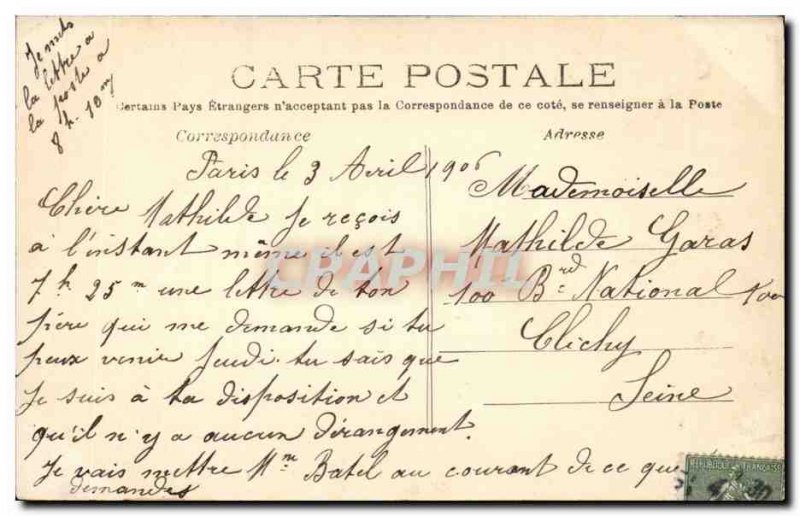 Je mets
la lettre a
la poste a
8 h. 10 m
CARTE POSTALE
Certains Pays Étrangers n'acceptant pas la Correspondance de ce coté, se renseigner à la Poste
Correspondance
Adresse
Paris le 3 Avril 1906
Chère Mathilde Je reçois
à l'instant même il est
7 h 25 m une lettre de ton
père qui me demande si tu
peux venir Jeudi. tu sais que
Je suis à ta disposition et
qu'il n'y a aucun dérangement.
Je vais mettre Mme Batel au courant de ce que
demandes
Mademoiselle
Mathilde Garas
100 Brd National 100
Clichy
Seine
CPAPHIL
REPUBLIQUE FRANÇAISE